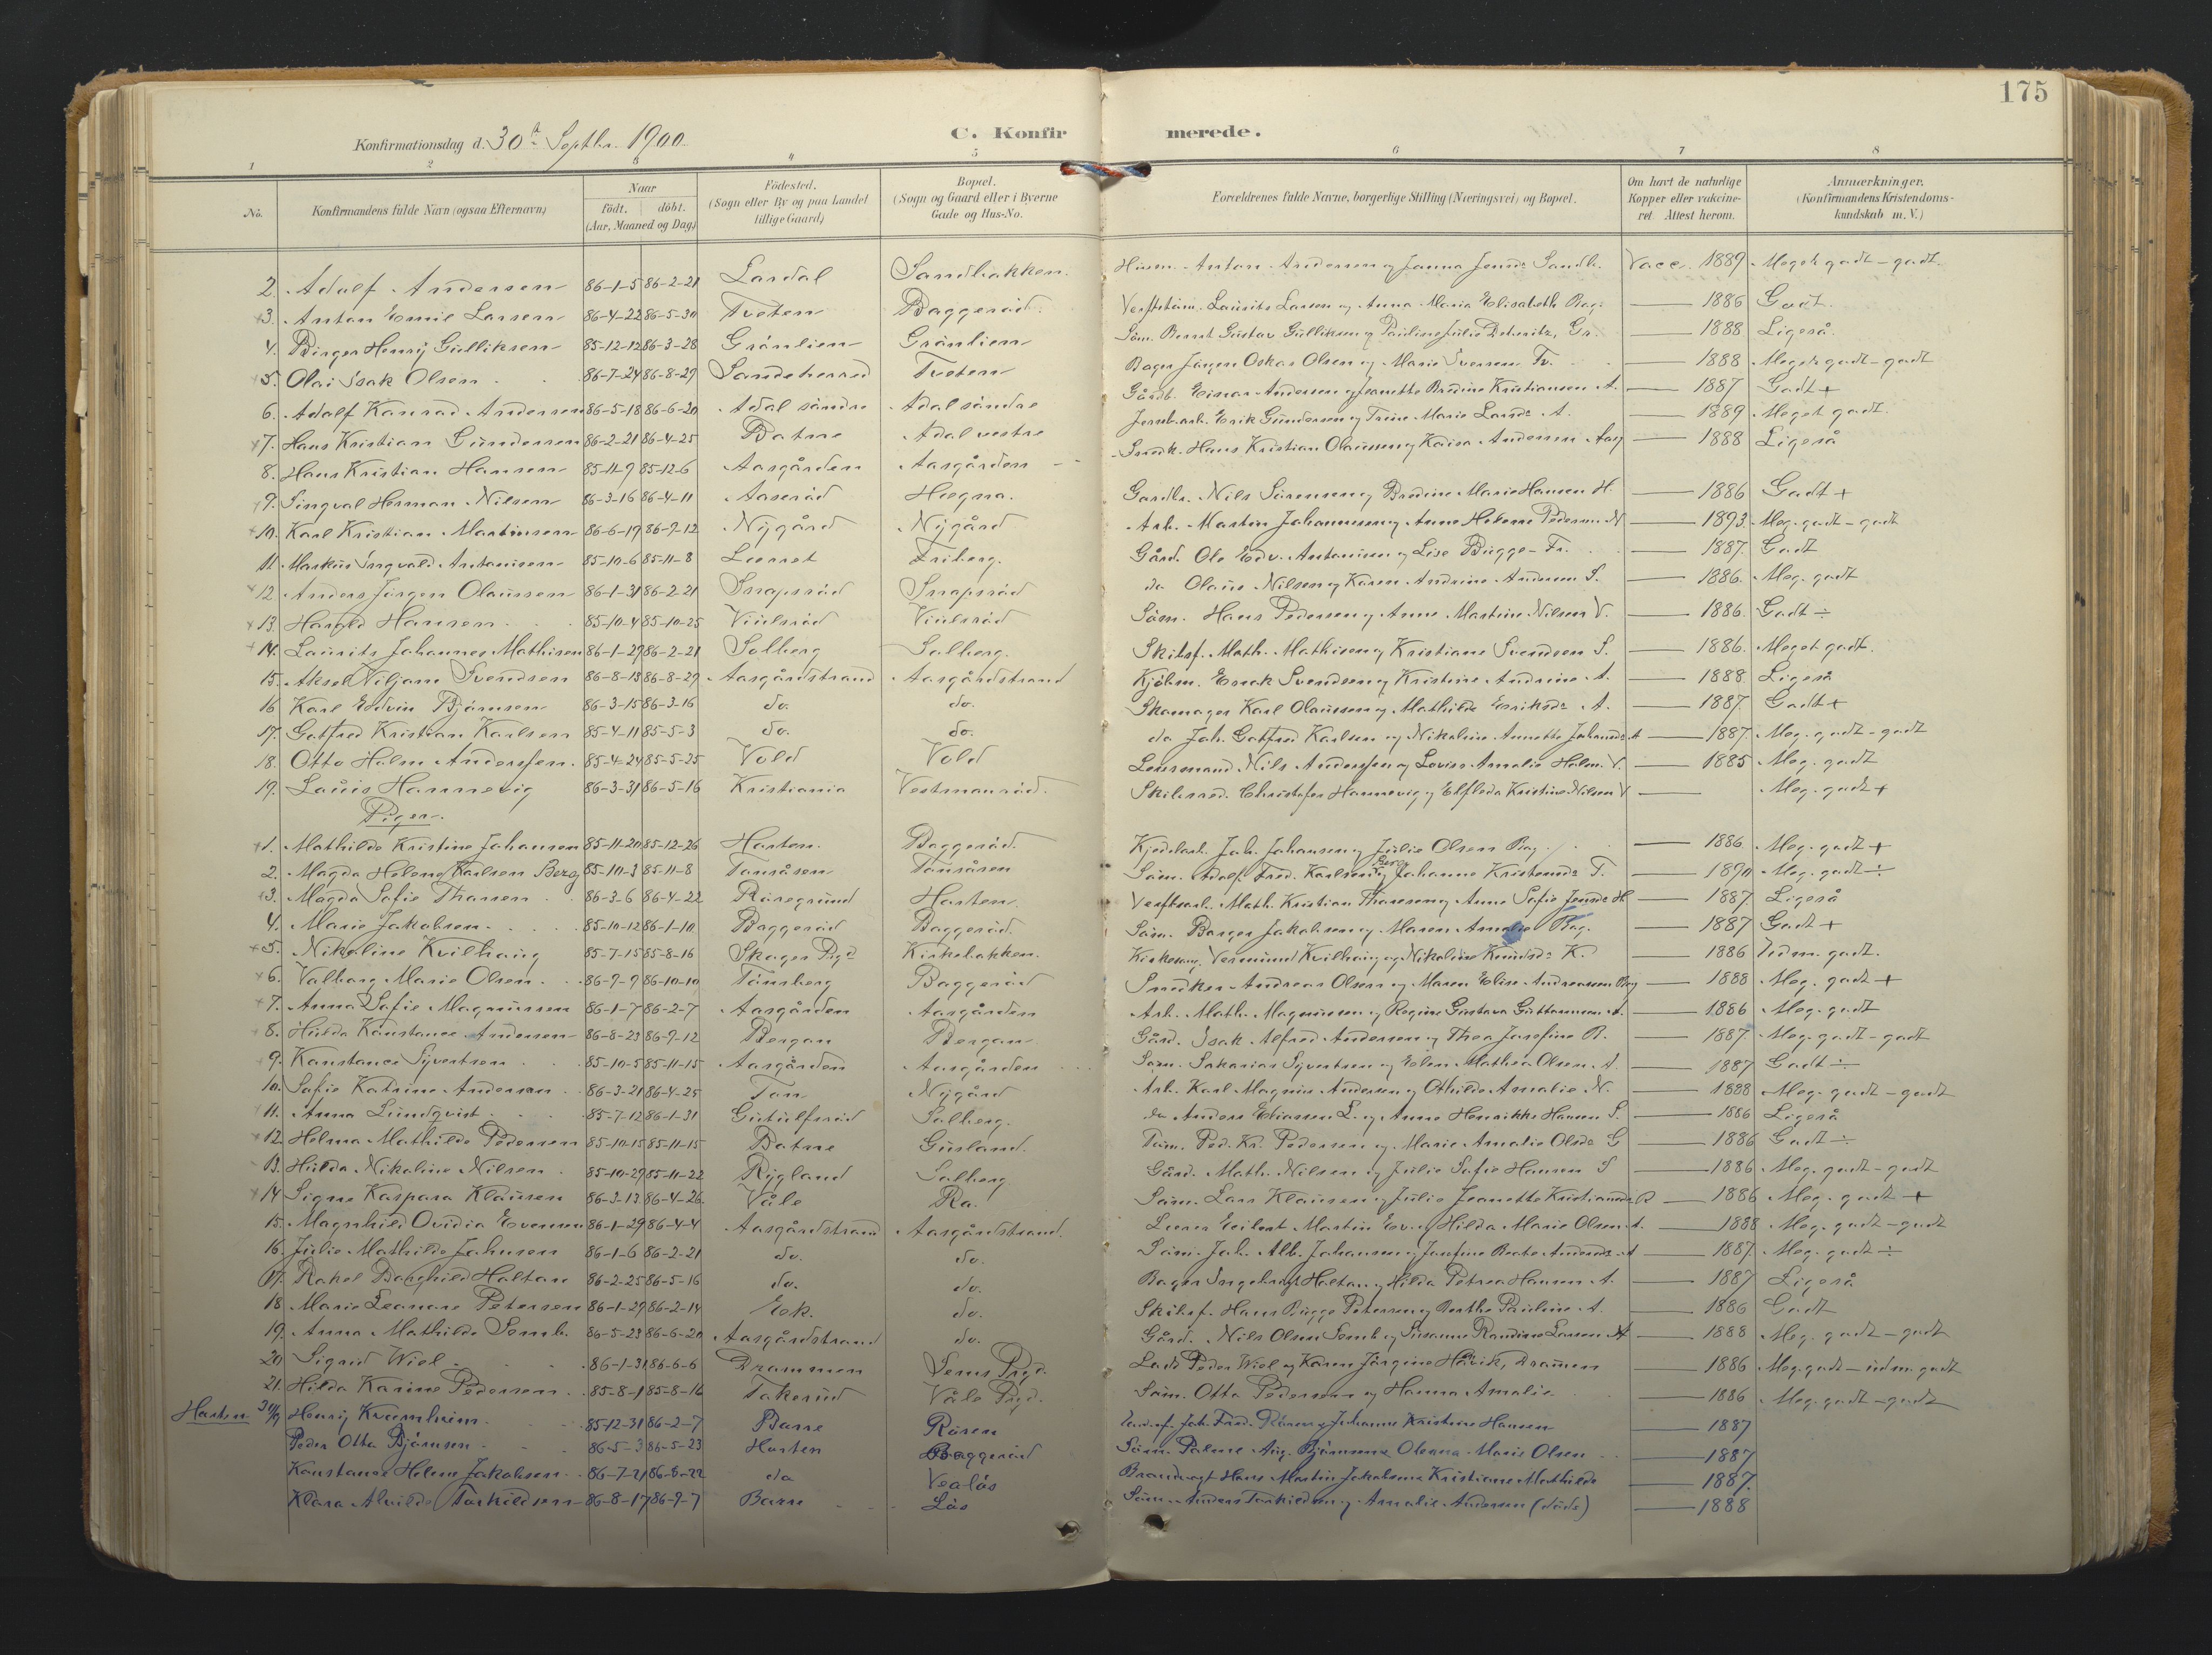 175
Konfirmationsdag d. 30te Septbr. 1900
C. Konfirmerede.
1 2 3 4 5 6 7 8
No. Konfirmandens fulde Navn (ogsaa Efternavn) Naar födt. döbt. (Aar, Maaned og Dag) Födested. (Sogn eller By og paa Landet tillige Gaard) Bopæl. (Sogn og Gaard eller i Byerne Gade og Hus-No. Forældrenes fulde Navne, borgerlige Stilling (Næringsvei) og Bopæl. Om havt de naturlige Kopper eller vaccineret Attest herom. Anmærkninger. (Konfirmandens Kristendomskundskab m. V.)
2. Adolf Andersen 86-1-5 86-2-21 Lardal Sandbakken. Anton Andersen og Janna Jensdr Sandb. Vacc. 1889 Meget godt - godt.
3. Anton Emil Larsen 86-4-22 86-5-30 Tveten Baggeröd. Laurits Larsen og Anna Maria Elisabeth Bag. — 1886 Godt.
4. Birger Henrÿ Gulliksen 85-12-12 86-3-28 Grönlien Grönlien Söm. Bernt Gustav Gulliksen og Pauline Julie Gr. — 1888 Ligeså
5. Olai Isak Olsen 86-7-24 86-8-29 Sandeherred Tveten Bager Jörgen Oskar Olsen og Marie Iversen Tv. — 1888 Meget godt - godt
6. Adolf Konrad Andersen 86-5-18 86-6-20 Adal söndre Adal söndre Gårdb. Einar Andersen og Jeanette Bredine Kristiansen A. — 1887 Godt +
7. Hans Kristian Gundersen 86-2-21 86-4-25 Botne Adal vestre Jernb.arb. Erik Gundersen og Trine Marie Larsdr A. — 1889 Meget godt.
8. Hans Kristian Hansen 85-11-9 85-12-6 Aasgården Aasgården Snedk. Hans Kristian Olausen og Kaisa Andersen Aasg — 1888 Ligeså
9. Singval Herman Nilsen 86-3-16 86-4-11 Aaseröd Hegna. Gardbr. Nils Sörensen og Bredine Marie Hansen H. — 1886 Godt +
10. Karl Kristian Martinsen 86-6-19 86-9-12 Nÿgård Nÿgård Arb. Martin Johannesen og Anne Helene Pedersen N — 1893. Meg. godt - godt
11. Markus Ingvald Antonisen 85-10-6 85-11-8 Lerret Friberg. Gård. Ole Edv. Antonisen og Lise Bugge Fr. — 1887. Godt
12. Anders Jörgen Olaussen 86-1-31 86-2-21 Snapsröd Snapsröd do Olaus Nilsen og Karen Andrine Andersen S. — 1886. Meg. godt
13. Harald Hansen 85-10-4 85-10-25 Viulsröd Viulsröd Söm. Hans Pedersen og Anne Martine Nilsen V. — 1886. Godt ÷
14. Laurits Johannes Mathisen 86-1-29 86-2-21 Solberg Solberg. Skibsf. Math. Mathisen og Kristiane Svendsen S. — 1886. Meget godt.
15. Aksel Viljam Svendsen 86-8-13 86-8-29 Aasgårdstrand Aasgårdstrand Kjöbm. Enok Svendsen og Kristine Andrine A. — 1888 Ligeså
16 Karl Edvin Björnsen 86-3-15 86-3-16 do. do. Skomager Karl Olaussen og Mathilde Eriksdr A. — 1887. Godt +
17. Gotfred Kristian Karlsen 85-4-11 85-5-3 do. do. do Joh. Gotfred Karlsen og Nikoline Annette A — 1887. Meg. godt - godt
18. Otto Holm Andersen. 85-4-24 85-5-25 Vold Vold Lensmand Nils Andersen og Lovise Amalie Holm. V. — 1885 Meg. godt
19. Lauis Hannevig 86-3-31 86-5-16 Kristiania Vestmanröd. Skibsred. Christofer Hannevig og Elfleda Kristine Nilsen V — Meg. godt +
Piger.
1. Mathilde Kristine Johansen 85-11-20 85-12-26 Horten. Baggeröd. Kjedelarb. Joh. Johansen og Julie Olsen Bag. — 1886 Meg. godt +
2. Magda Helene Karlsen Berg 85-10-3 85-11-8 Tonsåsen Tonsåsen Söm. Adolf Fred. Karlsen Berg og Johanne T. — 1890 Meg. godt ÷
3. Magda Sofie Thoresen 86-3-6 86-4-22 Röregrund Horten. Verftsarb. Math. Kristian Thoresen og Anne Sofie Jensdr H — 1887. Ligeså
4. Marie Jakobsen 85-10-12 86-1-10 Baggeröd Baggeröd. Söm. Borger Jakobsen og Maren Amalie Bag. — 1887 Godt +
5. Nikoline Kvilhaug 85-7-15 85-8-16 Skoger Pgd Kirkebakken. Kirkesang. Vermund Kvilhaug og Nikoline Knudsdr K. — 1886 Udm. godt.
6. Valborg Marie Olsen 86-9-9 86-10-10 Tönsberg Baggeröd Snedker Andreas Olsen og Maren Elise Andreassen Bag — 1888 Meg. godt +
7. Anna Sofie Magnussen 86-1-7 86-2-7 Aasgården Aasgården Arb. Math. Magnussen og Regine Gustava A. — 1886 Meg. godt
8. Hulda Konstance Andersen 86-8-23 86-9-12 Bergan Bergan Gård. Isak Alfred Andersen og Thea Josefine B. — 1887. Meg. godt - godt
9. Konstance Sÿvertsen 85-10-5 85-11-15 Aasgården Aasgården Söm. Sakarias Sÿvertsen og Elen Mathea Olsen A. — 1887 Godt ÷
10. Sofie Katrine Andersen 86-3-21 86-4-25 Ton Nÿgård Arb. Karl Magnus Andersen og Othilde Amalie N. — 1888 Meg. godt - godt
11. Anna Lundqvist 85-7-12 86-1-31 Gutulfsröd Solberg. do Anders Eliassen L. og Anne Henrikke Hansen S. — 1886 Ligeså
12. Helma Mathilde Pedersen 85-10-15 85-11-15 Botne Gusland. Töm. Ped. Kr. Pedersen og Marie Amalie Olsdr G — 1886 Godt ÷
13. Hulda Nikoline Nilsen 85-10-29 85-11-22 Rÿgland Solberg Gård. Math. Nilsen og Julie Sofie Hansen S — 1886 Meg. godt - godt
14 Signe Kaspara Klausen 86-3-13 86-4-26 Våle Ra. Söm. Lars Klausen og Julie Jeanette Kristiansdr R — 1886 Meg. godt +
15. Magnhild Ovidia Evensen 86-1-29 86-4-4 Aasgårdstrand Aasgårdstrand. Eilert Martin Ev. og Hilda Marie Olsen A. — 1888 Meg. godt - godt
16. Julie Mathilde Johnsen 86-1-6 86-2-21 do. do. Söm. Joh. Alb. Johansen og Josefine Beate Andersdr A — 1887. Meg. godt ÷
17. Rakel Borghild Holtan 86-2-25 86-5-16 do. do. Bager Ingebrigt Holtan og Hilda Petrea Hansen A. — 1887 Ligeså
18 Marie Leonore Petersen 86-1-29 86-2-14 Eek. do. Skibsf. Hans Bugge Petersen og Berthe Pauline A. — 1886 Godt
19. Anna Mathilde Semb. 86-5-23 86-6-20 Aasgårdstrand do. Gård. Nils Olsen Semb og Susanne Randine Larsen A — 1888 Meg. godt - godt
20 Sigrid Wiel 86-1-31 86-6-6 Drammen Sems Pgd. Peder Wiel og Karen Jörgine Hårik, Dramen — 1886 Meg. godt - udm. godt
21. Hilda Karine Pedersen 85-8-1 85-8-16 Takerud Våle Pgd. Söm. Otto Pedersen og Hanna Amalie — 1886 Meg. godt - godt
Horten 30/9 Henrÿ Kvernheim 85-12-31 86-2-7 Borre Rören Joh. Fred. Rören og Johanne Kristine Hansen — 1887
Peder Otto Björnsen 86-5-3 86-5-23 Horten Baggeröd Söm. Palme Aug. Björnsen og Olenna Marie Olsen — 1887
Konstance Helene Jakobsen 86-7-21 86-8-22 do Vealös Brandvagt Hans Martin Jakobsen og Kristiane Mathilde — 1887.
Klara Alvilde Torkildsen 86-8-17 86-9-7 Borre Lös Söm. Anders Torkildsen og Amalie Andersen (döde) — 1888